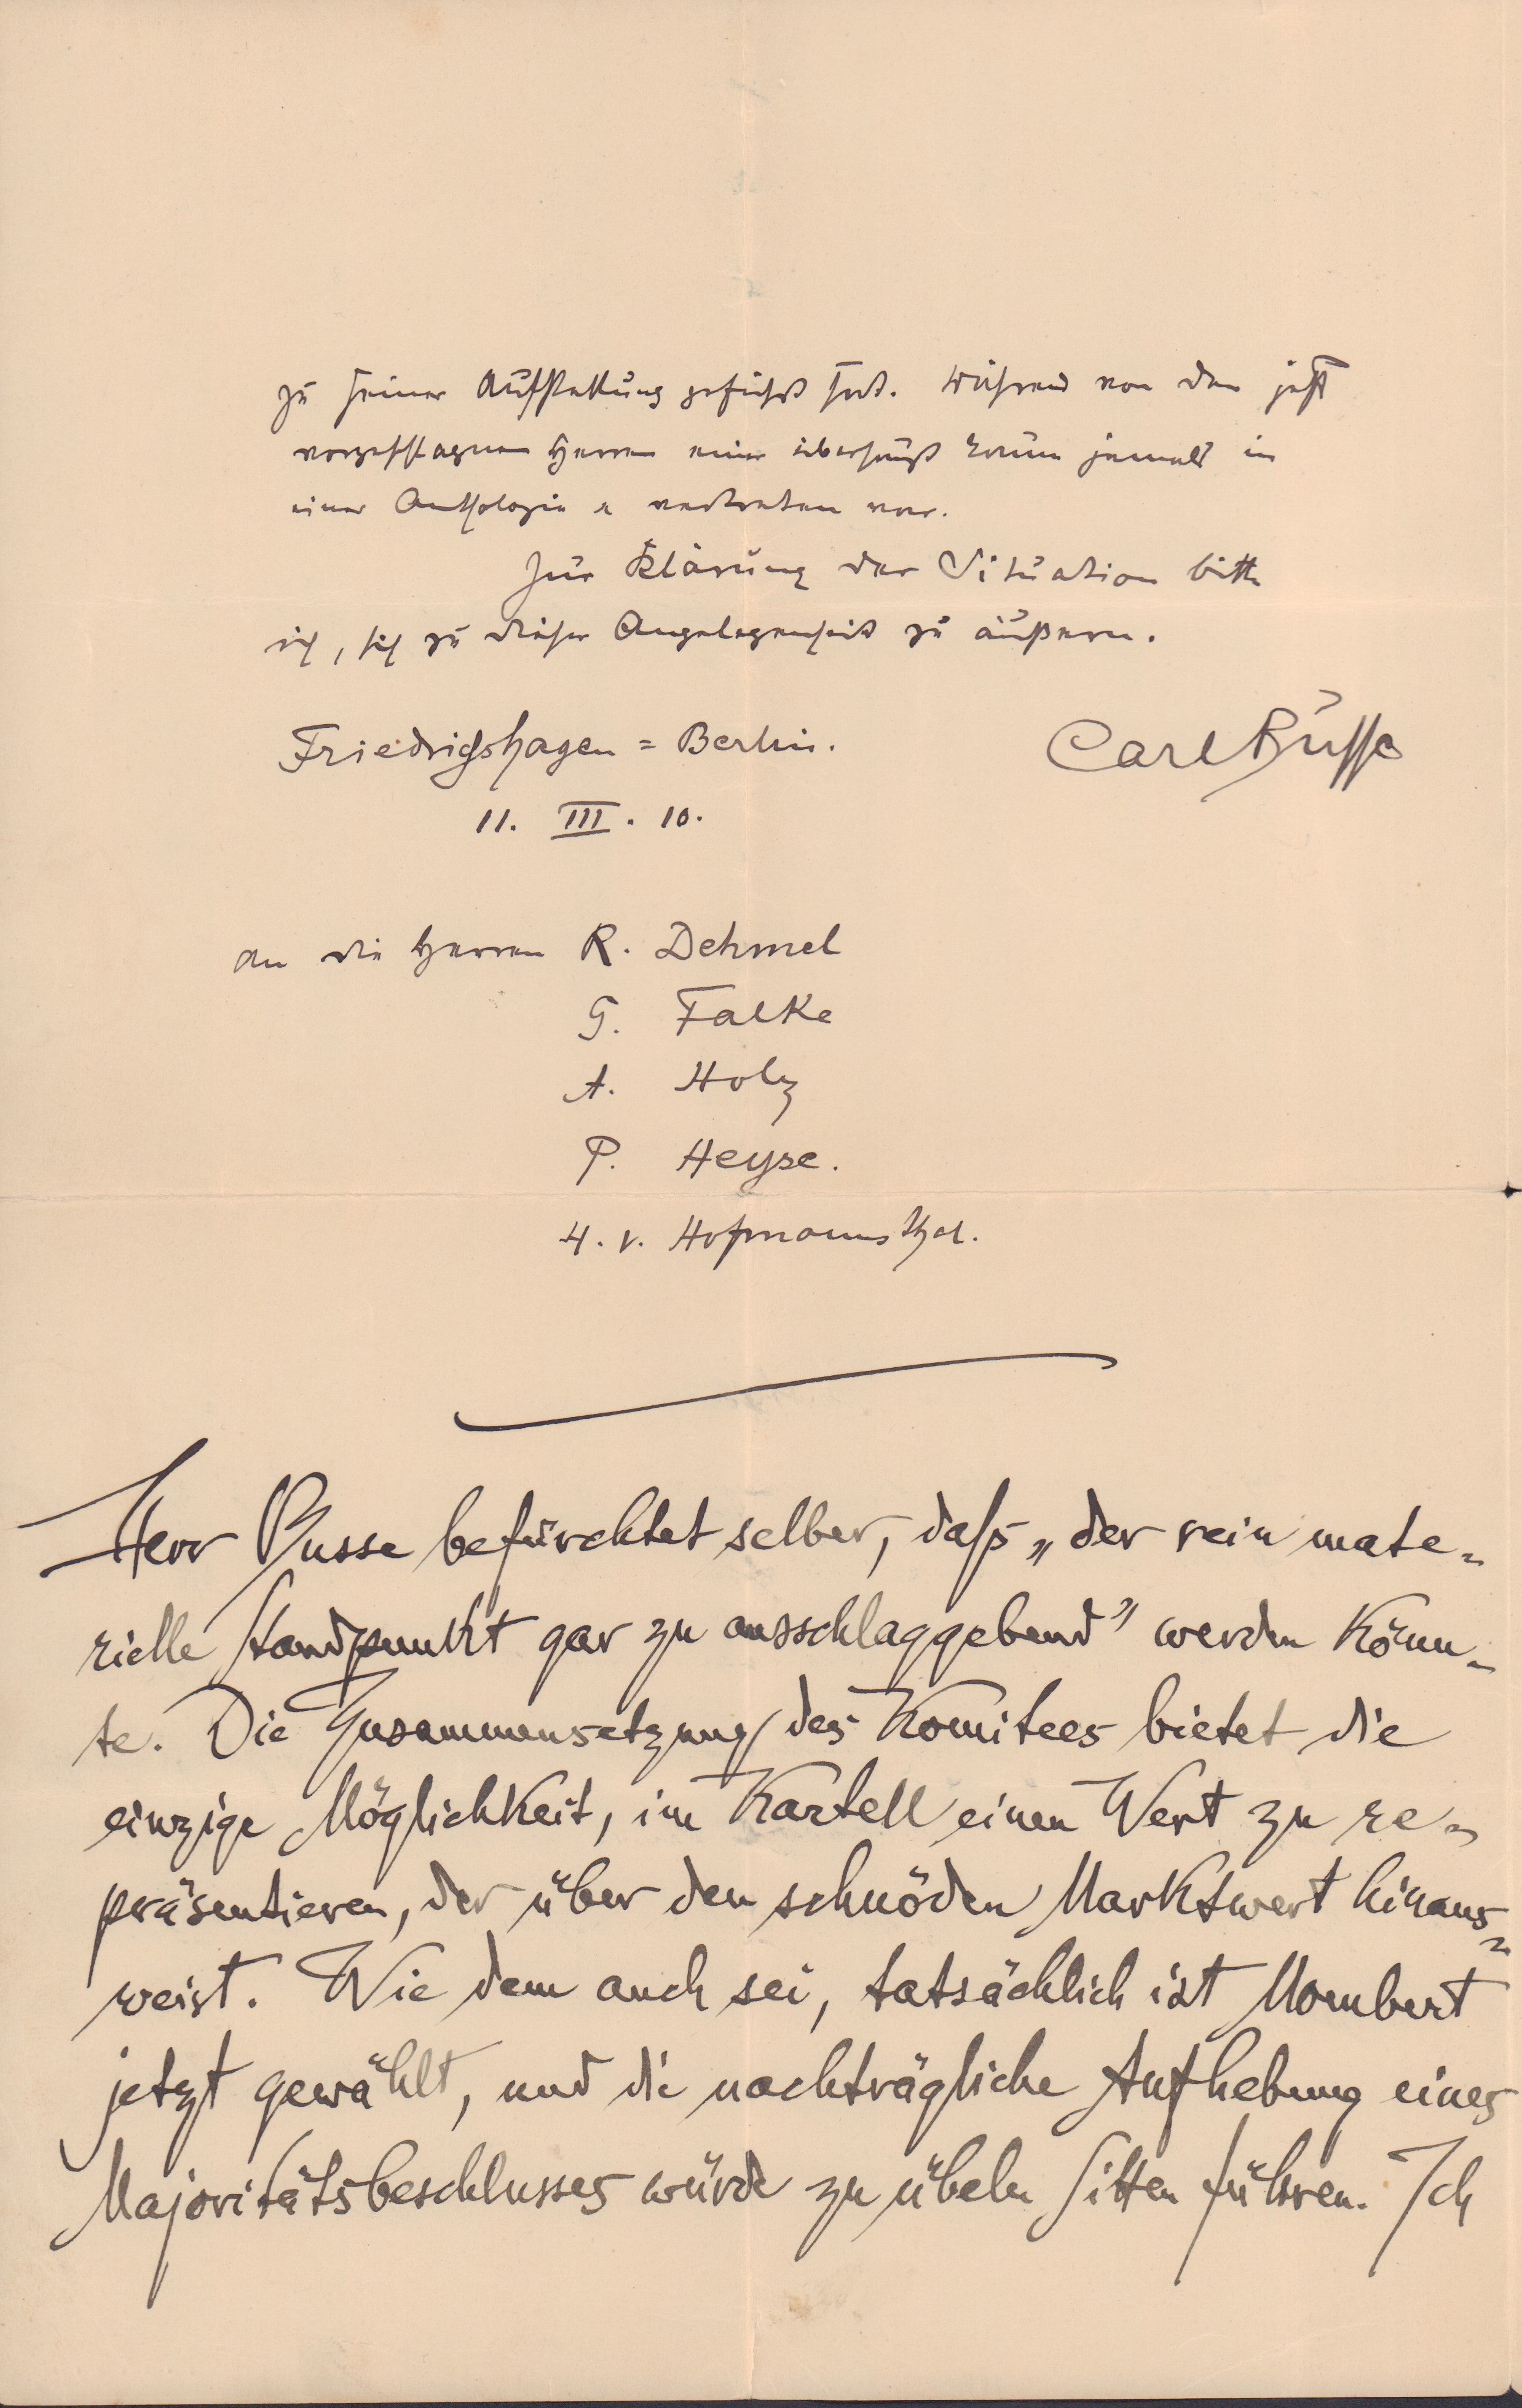 zu seiner Aufstellung geführt hat. Während von den jetzt
vorgeschlagnen Herren einer überhaupt kaum jemals in
einer Anthologie vertreten war.
Zur Klärung der Situation bitte
ich, sich zu dieser Angelegenheit zu äußern.
Friedrichshagen = Berlin.
Carl Busse
11. III. 10.
An die Herren R. Dehmel
G. Falke
A. Holz
P. Heyse.
H. v. Hofmannsthal.
Herr Busse befürchtet selber, daß „der rein mate-
rielle Standpunkt gar zu ausschlaggebend" werden könn-
te. Die Zusammensetzung des Komitees bietet die
einzige Möglichkeit, im Kartell einen Wert zu re-
präsentieren, der über den schnöden Marktwert hinaus-
weist. Wie dem auch sei, tatsächlich ist Mombert
jetzt gewählt, und die nachträgliche Aufhebung eines
Majoritätsbeschlusses würde zu übeln Sitten führen. Ich